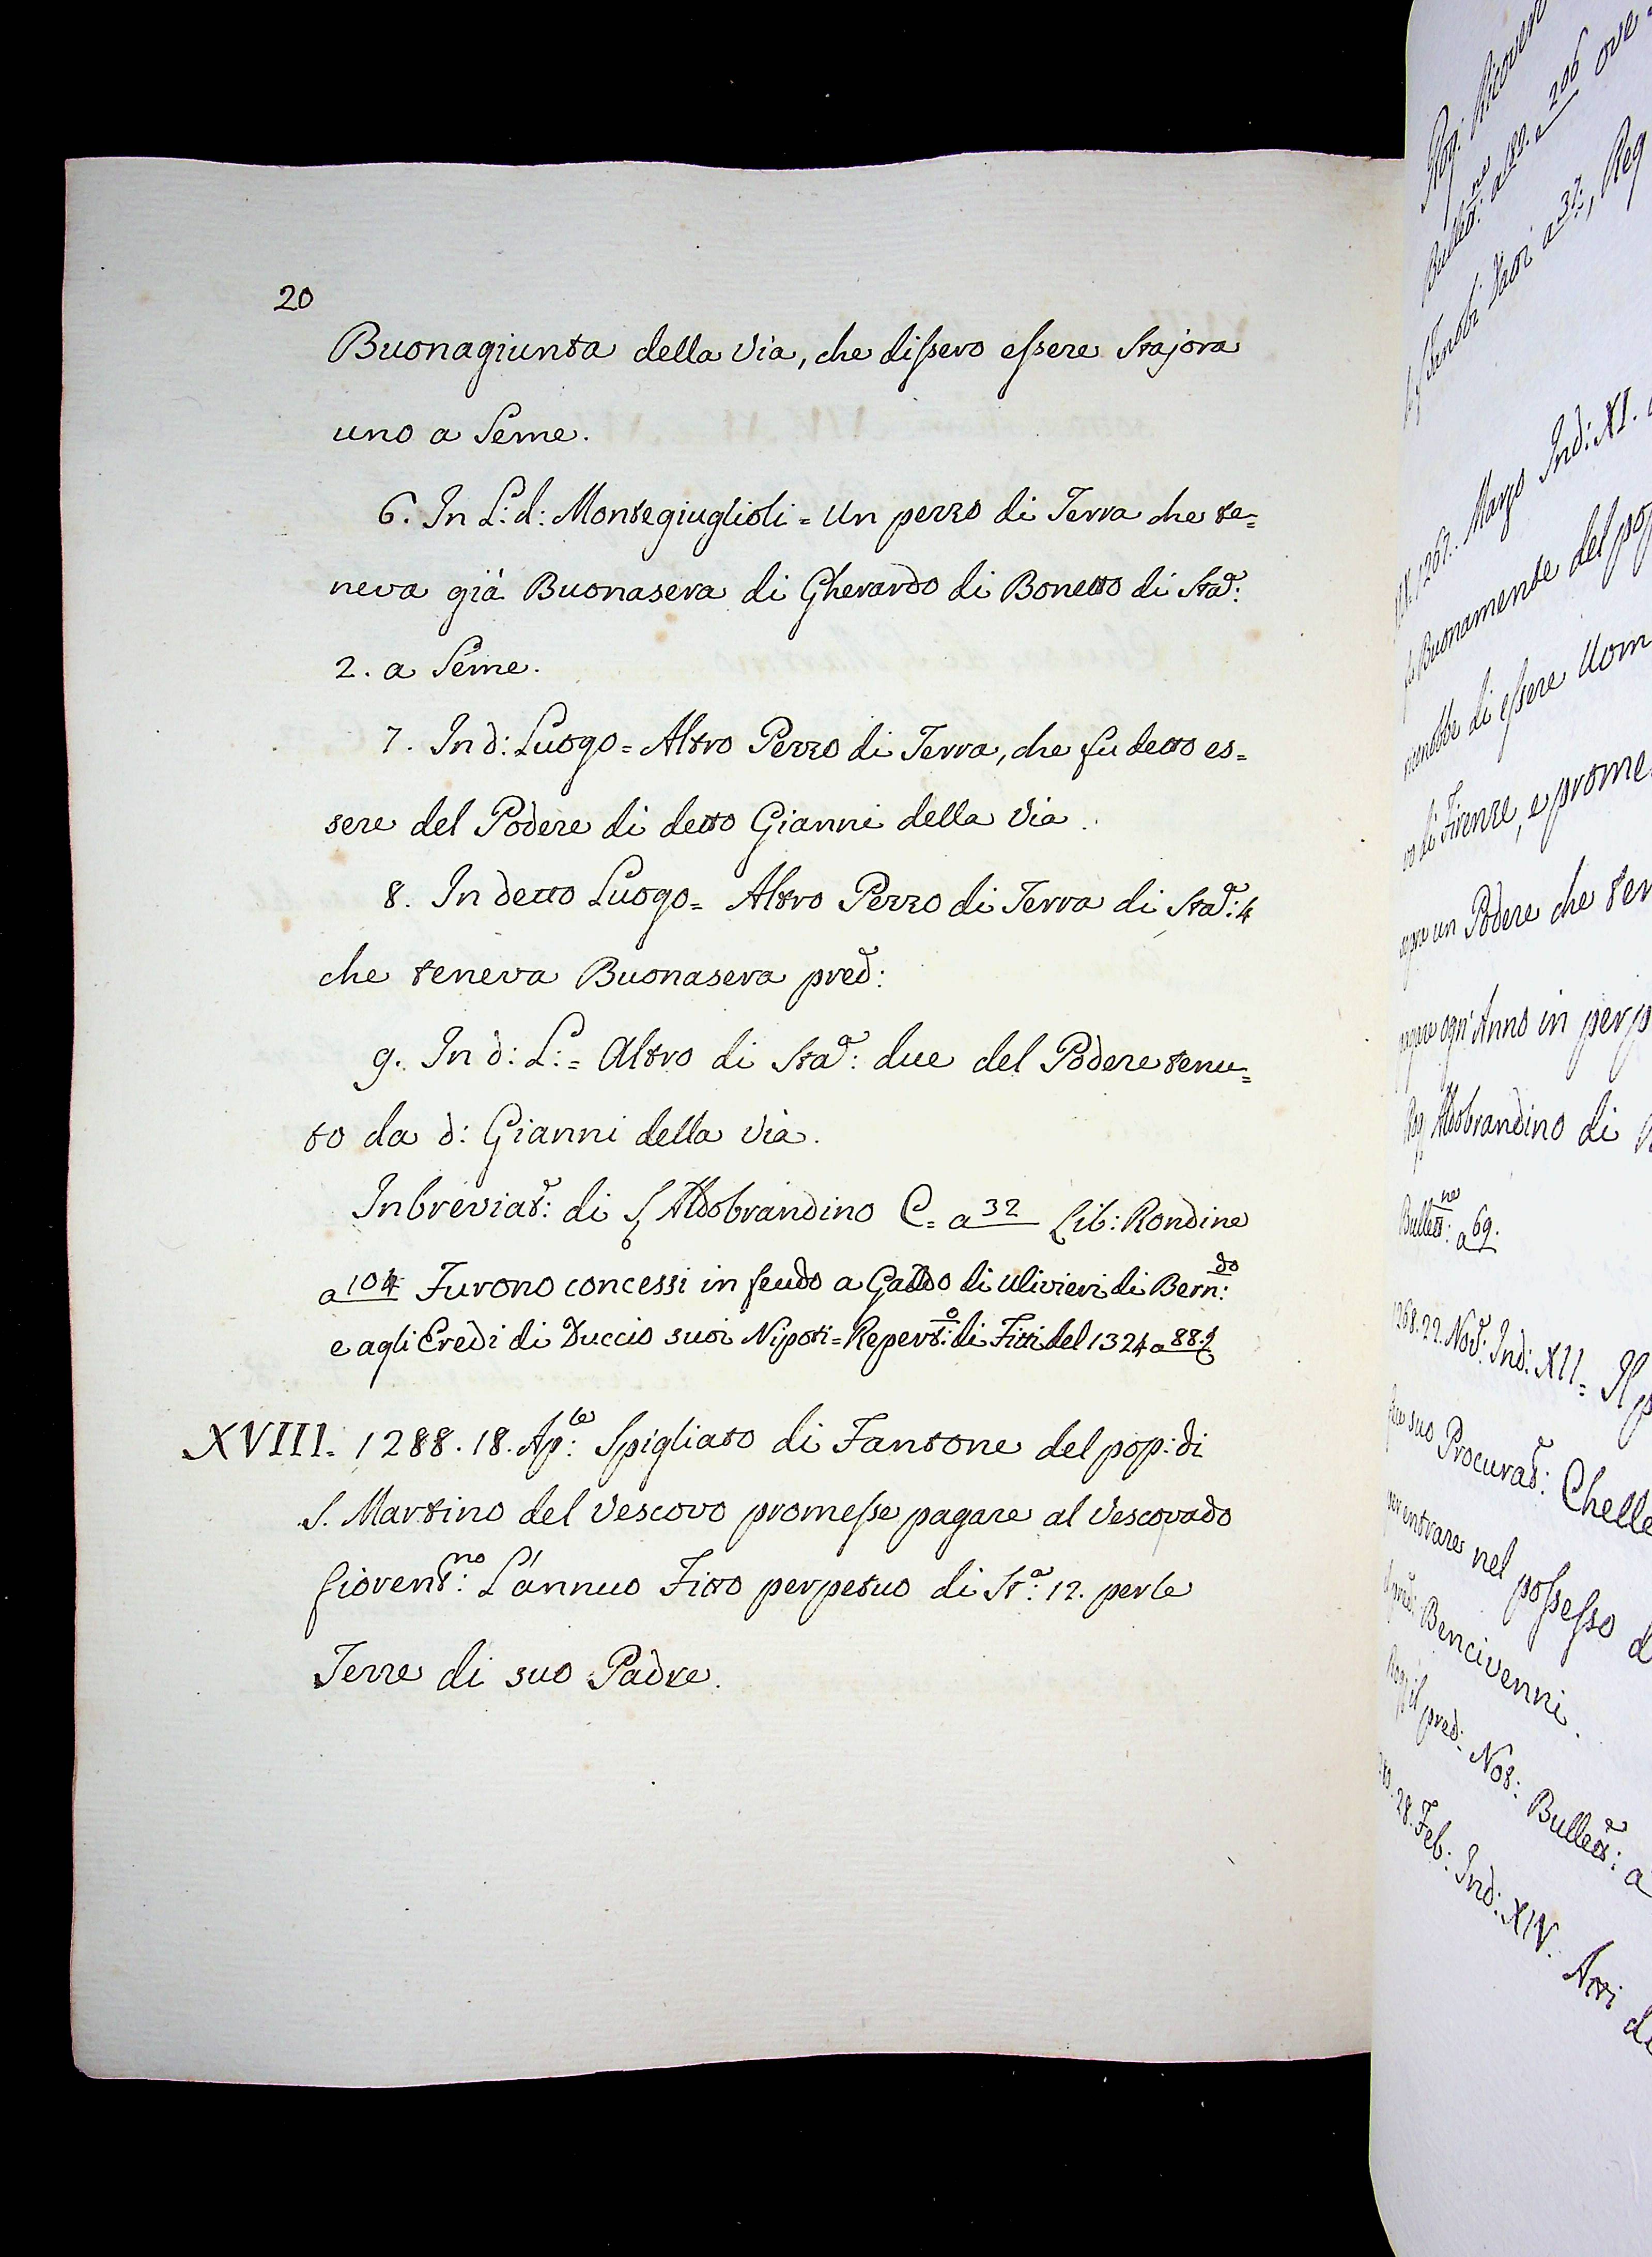 20
Buonagiunta della Via, che dissero essere Stajora
uno a Seme.
6. In L: d: Montegiuglioli = Un pezzo di Terra che te=
neva già Buonasera di Gherardo di Bonetto di Staª:
2. a Seme.
7. In d: Luogo = Altro Pezzo di Terra, che fu detto es=
sere del Podere di detto Gianni della Via.
8. In detto Luogo = Altro Pezzo di Terra di Staª: 4
che teneva Buonasera pred:
9. In d: L: = Altro di Staª: due del Podere tenu=
to da d: Gianni della Via.
Inbreviat: di S. Aldobrandino C = a 32 Lib: Rondine
a 104 Furono concessi in feudo a Gaddo di Ulivieri di Bern:do
e agli Eredi di Duccio suoi Nipoti = Repert:o di Fitti del 1324 a 88.
XVIII. 1288. 18. Ap:le Spigliato di Fantone del pop: di
S. Martino del Vescovo promesse pagare al Vescovado
fiorent:no L'annuo Fitto perpetuo di Stª: 12. per le
Terre di suo Padre.
Bullett:ne a 189. a 206 ove
a 37, Reg
1267. Marzo Ind: XI.
Buonamente del pop
di essere Uom
di Firenze, e prome
un Podere che ten
ogn' Anno in perp
Rog. Aldobrandino di
Bullett:ne a 69.
1268. 22. Nov: Ind: XII = Il p
suo Procurat: Chelle
per entrare nel possesso d
Bencivenni.
il pred: Not: Bullett: a
28. Feb: Ind: XIV. Atti di